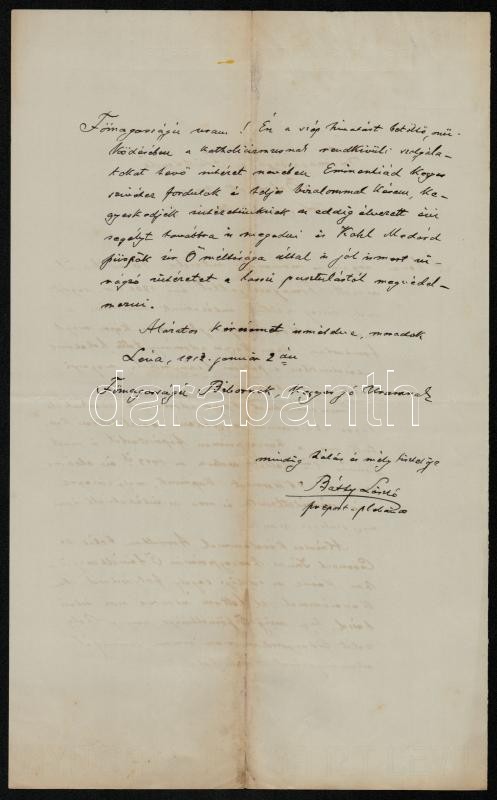 Főmagasságú uram! Én a szép hivatást betöltő, mű-
ködésében a katholicizmusnak rendkívüli szolgála-
tokat tevő intézet nevében Eminentiád kegyes
szívéhez fordulok és teljes bizalommal kérem, ke-
gyeskedjék intézetünknek az eddig élvezett évi
segélyt továbbra is megadni és Kohl Medárd
püspök úr Ő méltósága által is jól ismert vi-
rágzó intézetet a lassú pusztulástól megvédel-
mezni.
Alázatos kérésemet ismételve, maradok
Léva, 1912. január 2 án
Főmagasságú Bíboros, Kegyes jó Uramnak
darabanth
mindig hálás és mély tisztelője
Bátsy László
prépost-plébános